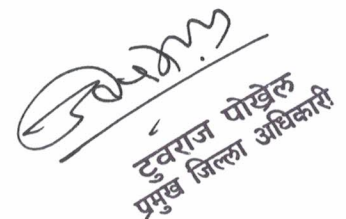 टुवराज पोख्रेल
प्रमुख जिल्ला अधिकारी